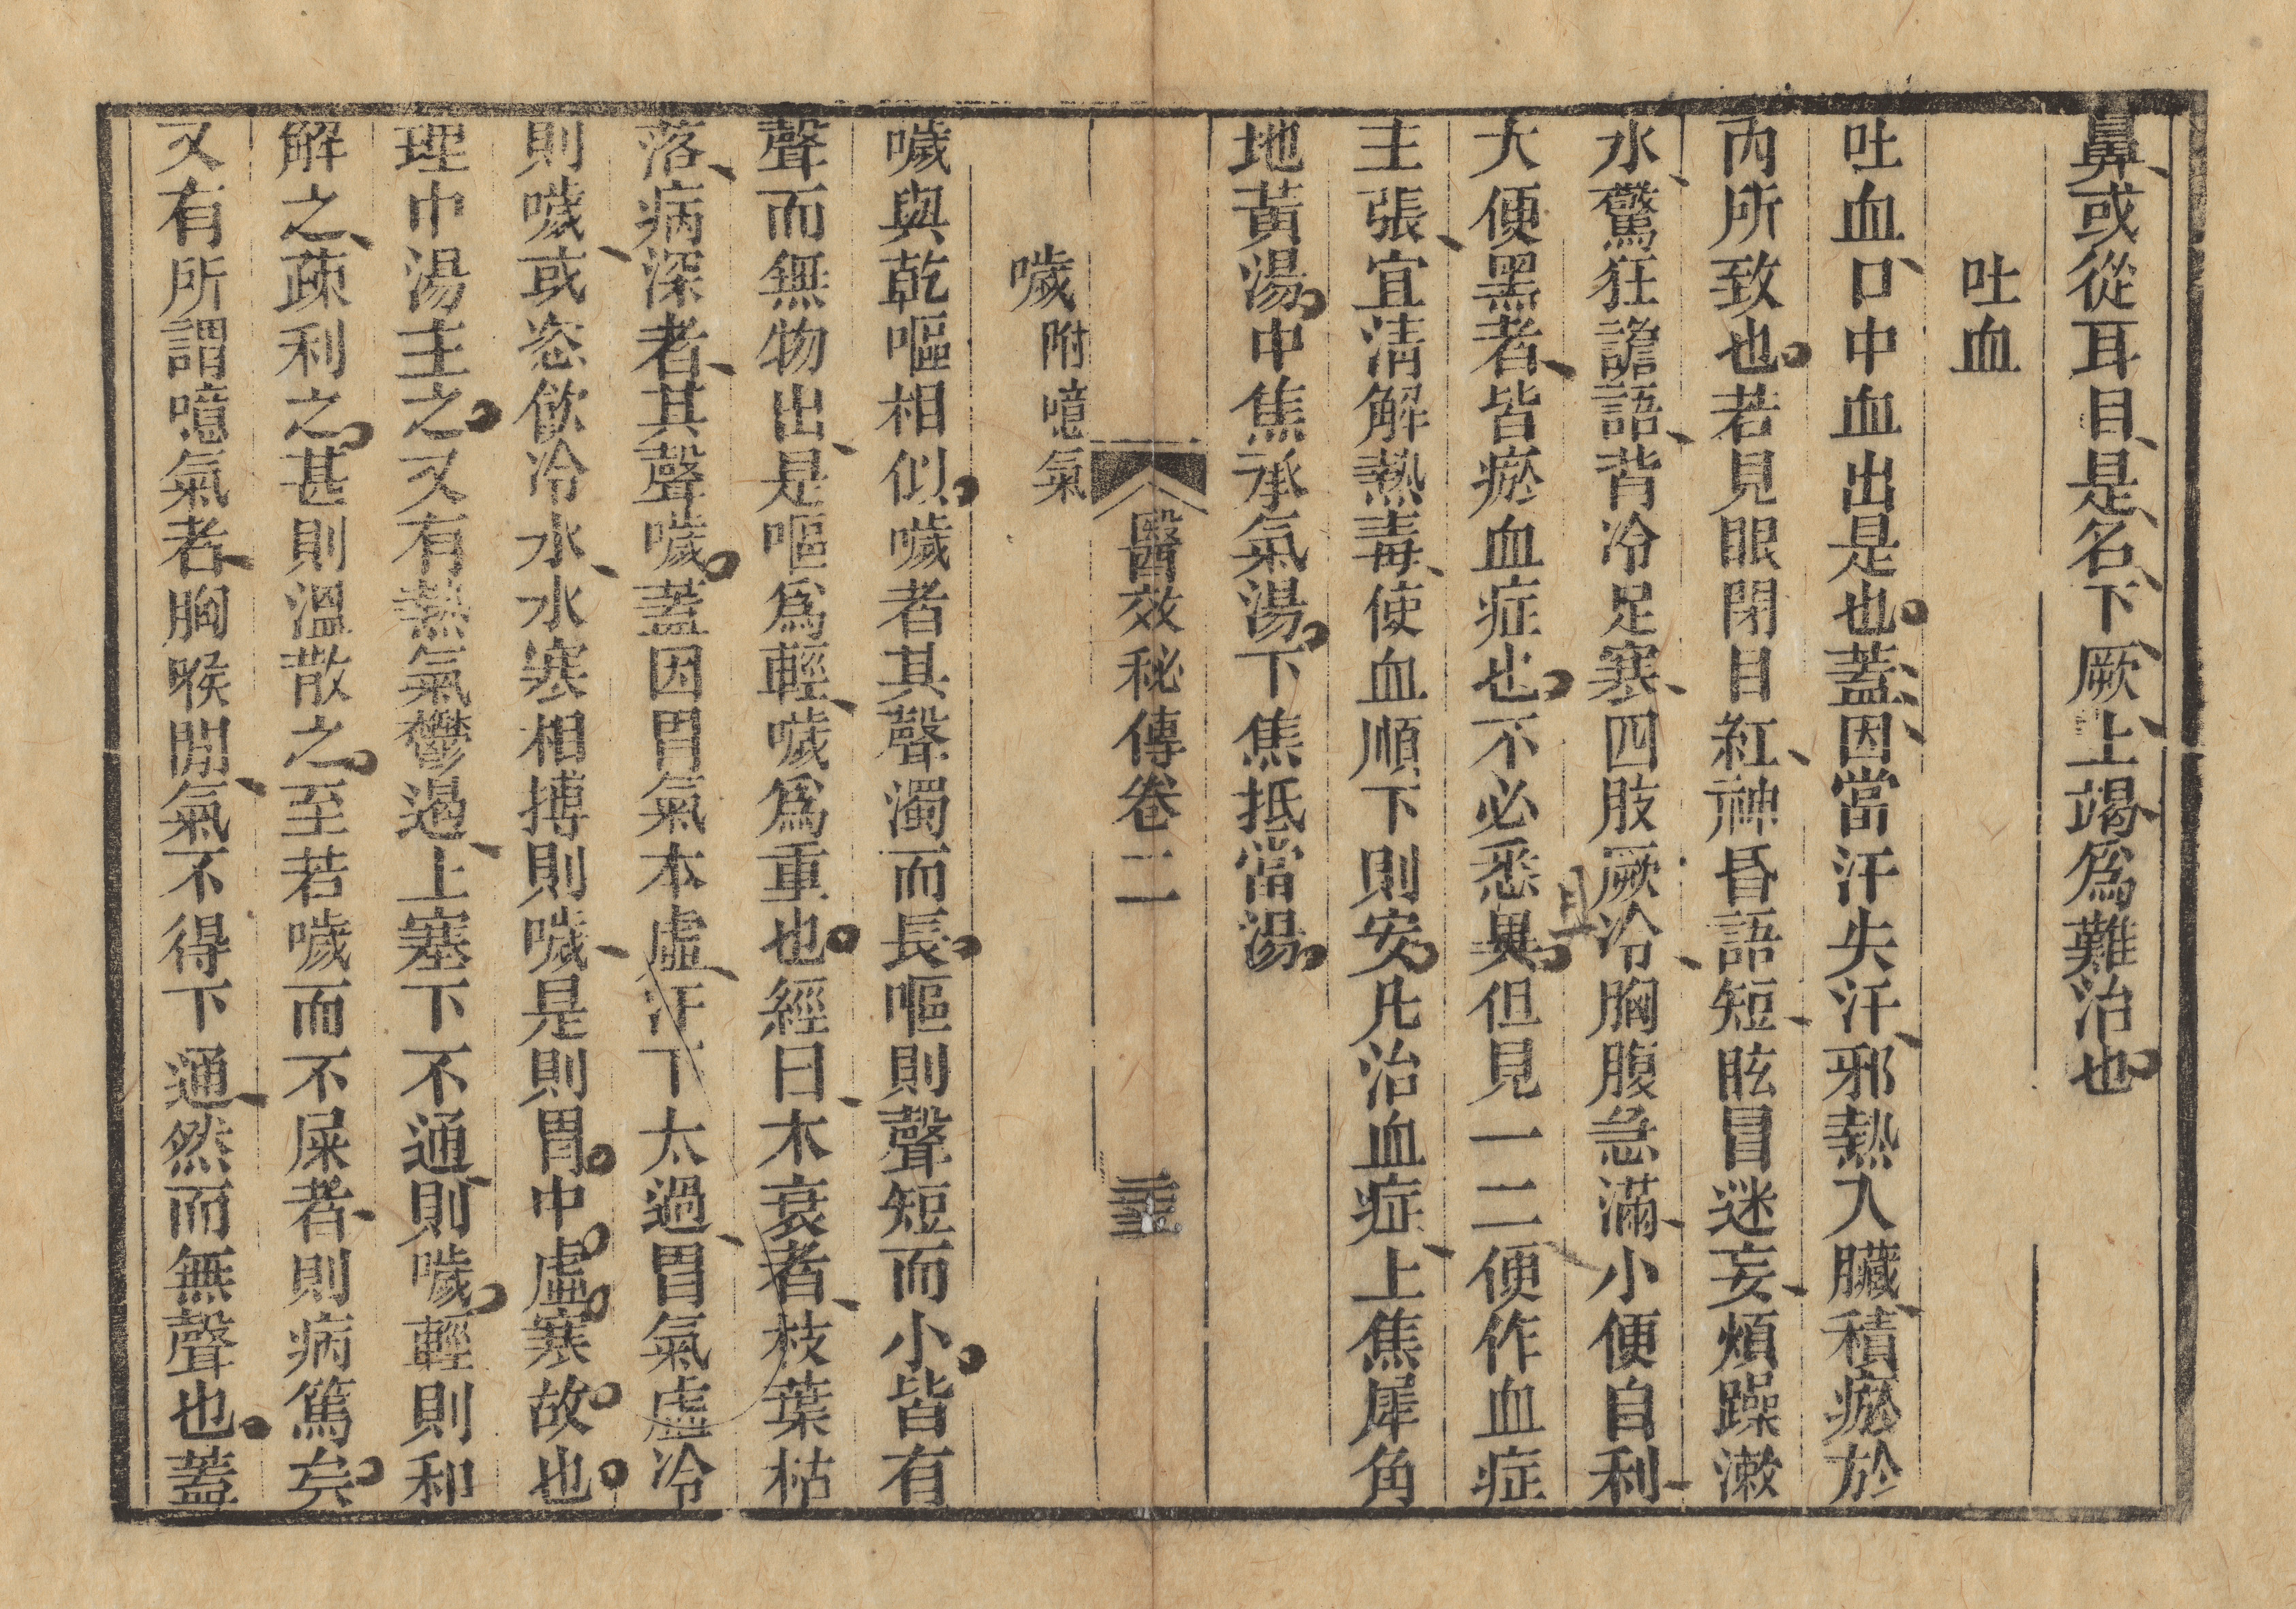 鼻或從耳目是名下厥上竭爲難治也
吐血
吐血口中血出是也蓋因當汗失汗邪熱入臟積瘀於
內所致也若見眼閉目紅神昏語短眩冒迷妄煩躁漱
水驚狂譫語背冷足寒四肢厥冷胸腹急滿小便自利
大便黑者皆瘀血症也不必悉具但見一二便作血症
主張宜淸解熱毒使血順下則安凡治血症上焦犀角
地黃湯中焦承氣湯下焦抵當湯
醫效秘傳卷二
噦附噫氣
噦與乾嘔相似噦者其聲濁而長嘔則聲短而小皆有
聲而無物出是嘔爲輕噦爲重也經曰木衰者枝葉枯
落病深者其聲噦蓋因胃氣本虛汗下太過胃氣虛冷
則噦或恣飮冷水水寒相搏則噦是則胃中虛寒故也
理中湯主之又有熱氣鬱遏上塞下不通則噦輕則和
解之疎利之甚則溫散之至若噦而不屎者則病篤矣
又有所謂噫氣者胸喉閒氣不得下通然而無聲也蓋